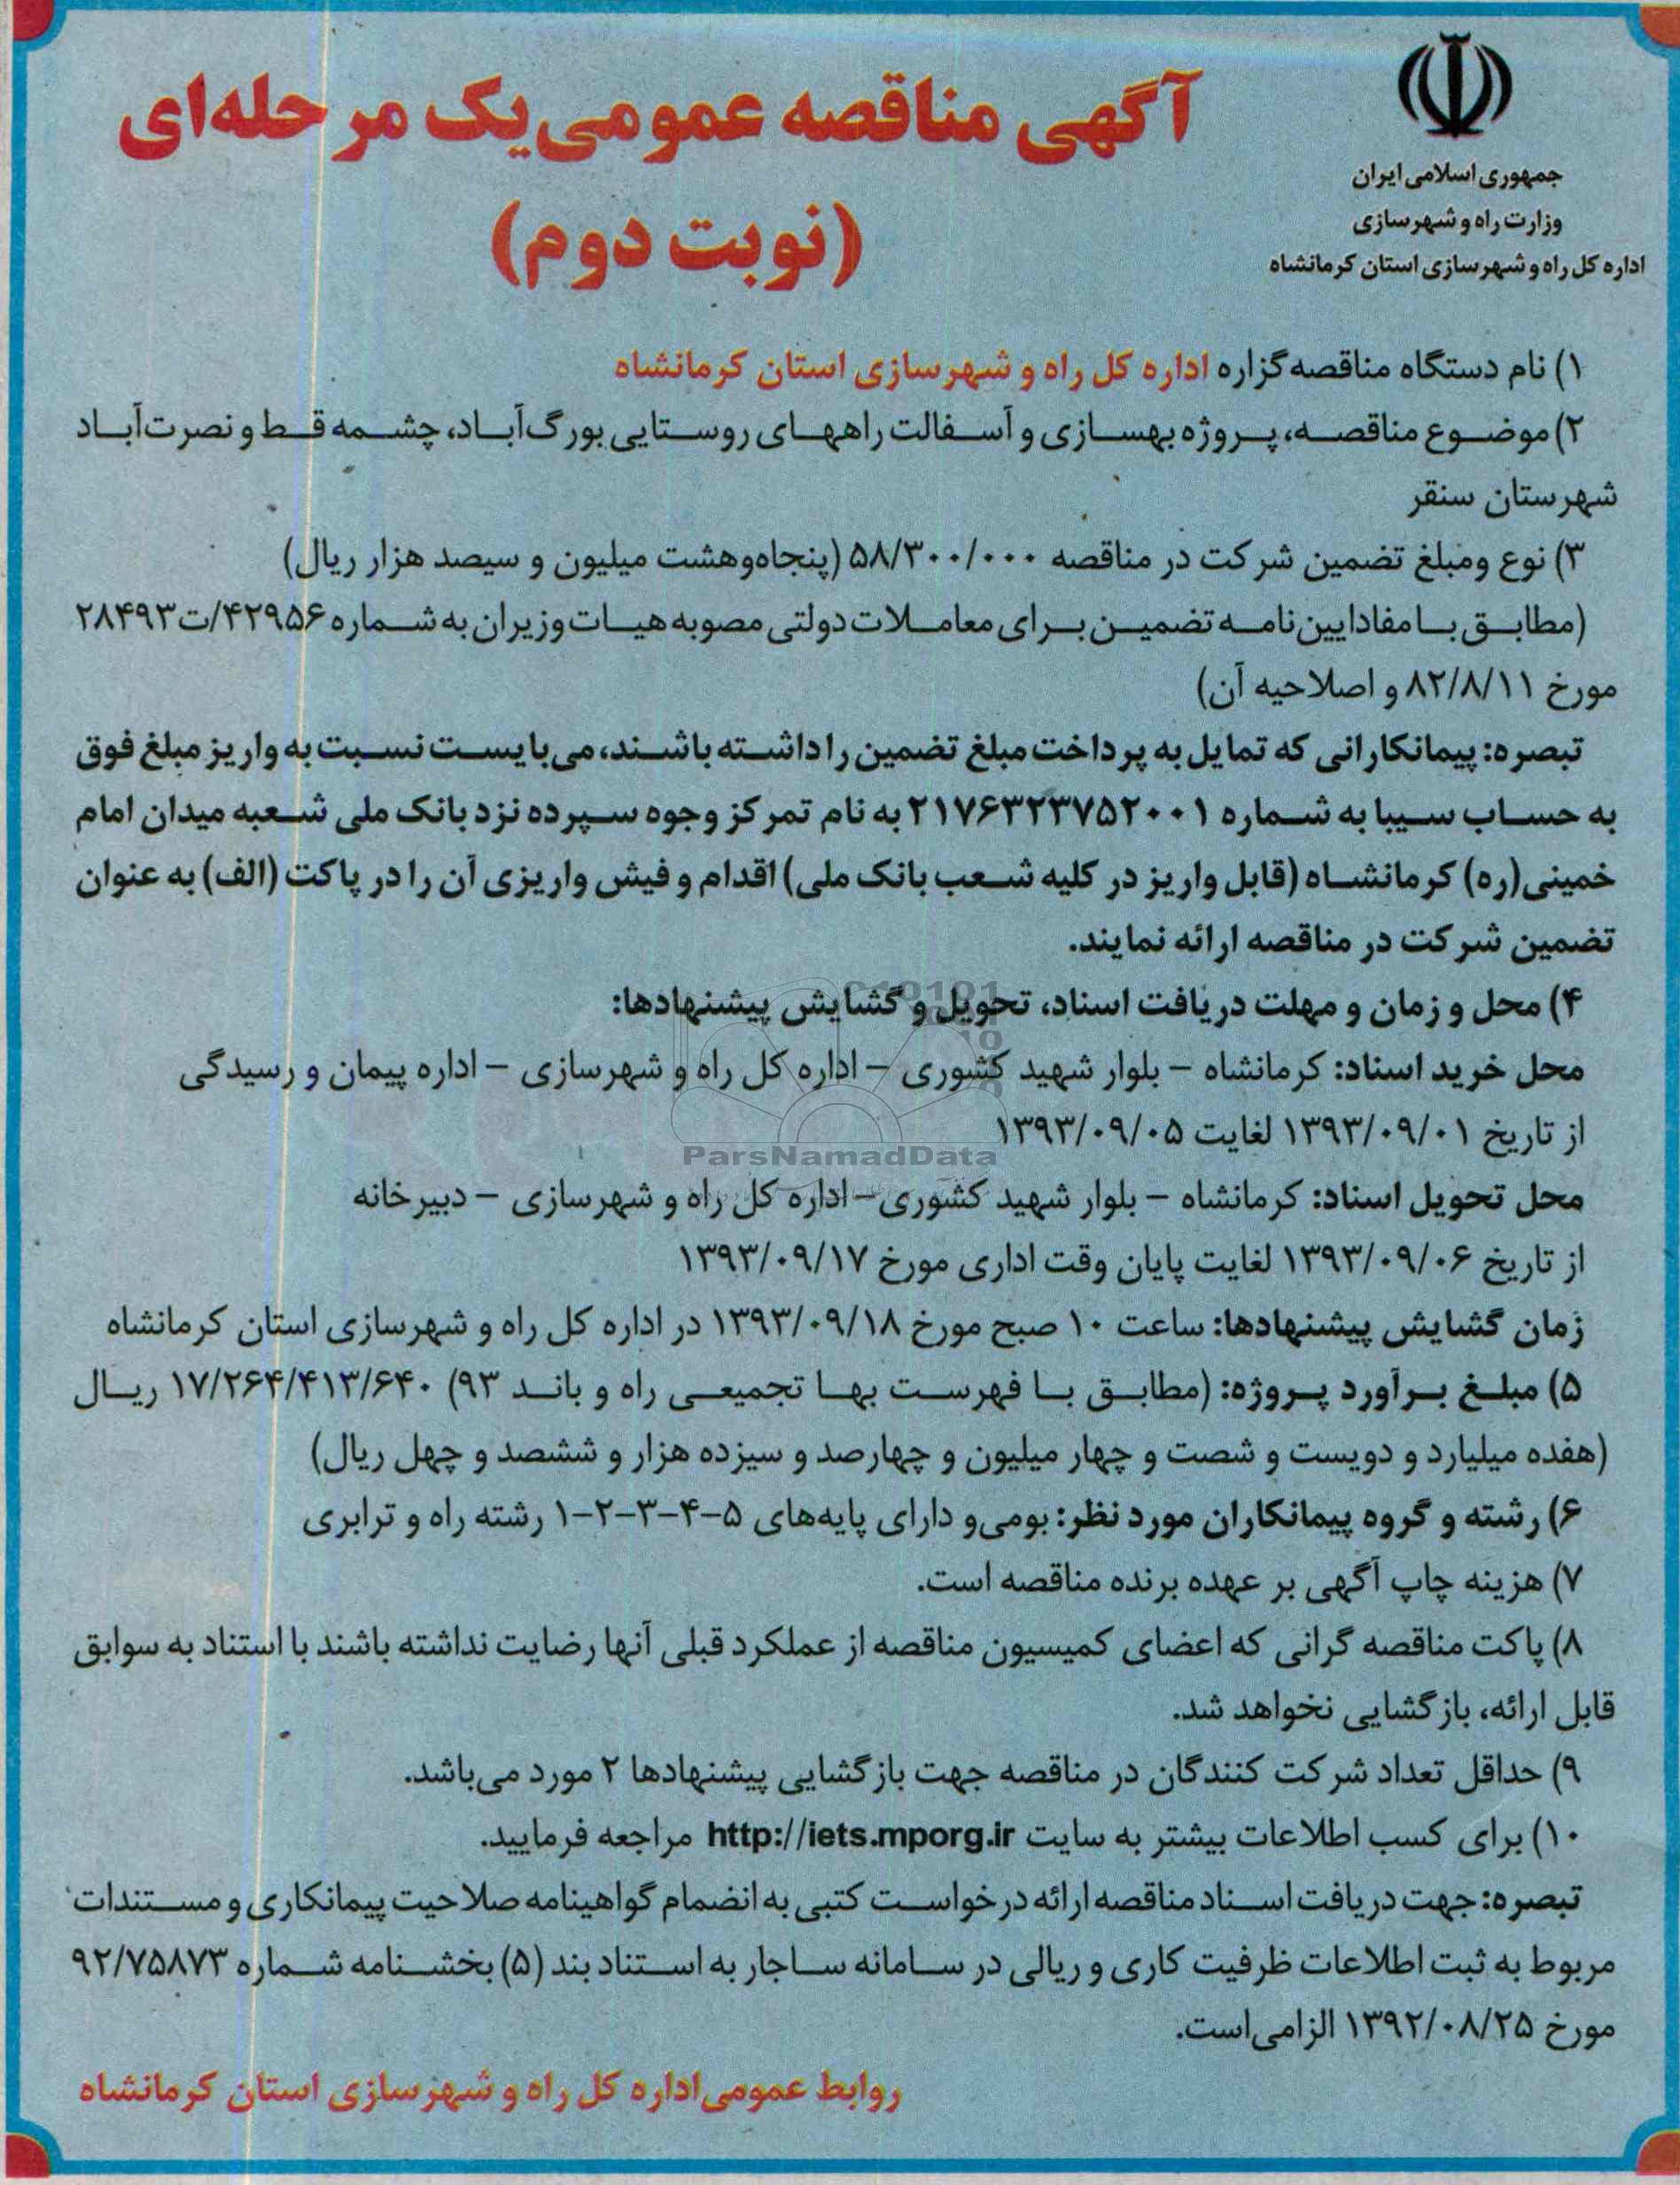 جمهوری اسلامی ایران
وزارت راه و شهرسازی
اداره کل راه و شهرسازی استان کرمانشاه
آگهی مناقصه عمومی یک مرحله‌ای
(نوبت دوم)
۱) نام دستگاه مناقصه گزاره اداره کل راه و شهرسازی استان کرمانشاه
۲) موضوع مناقصه، پروژه بهسازی و آسفالت راههای روستایی بورگ آباد، چشمه قط و نصرت آباد
شهرستان سنقر
۳) نوع ومبلغ تضمین شرکت در مناقصه ۵۸/۳۰۰/۰۰۰ (پنجاه‌وهشت میلیون و سیصد هزار ریال)
(مطابق با مفاد ایین نامه تضمین برای معاملات دولتی مصوبه هیات وزیران به شماره ۴۲۹۵۶/ت۲۸۴۹۳
مورخ ۸۲/۸/۱۱ و اصلاحیه آن)
تبصره: پیمانکارانی که تمایل به پرداخت مبلغ تضمین را داشته باشند، می‌بایست نسبت به واریز مبلغ فوق
به حساب سیبا به شماره ۲۱۷۶۳۲۳۷۵۲۰۰۱ به نام تمرکز وجوه سپرده نزد بانک ملی شعبه میدان امام
خمینی(ره) کرمانشاه (قابل واریز در کلیه شعب بانک ملی) اقدام و فیش واریزی آن را در پاکت (الف) به عنوان
تضمین شرکت در مناقصه ارائه نمایند.
۴) محل و زمان و مهلت دریافت اسناد، تحویل و گشایش پیشنهادها:
محل خرید اسناد: کرمانشاه – بلوار شهید کشوری – اداره کل راه و شهرسازی – اداره پیمان و رسیدگی
از تاریخ ۱۳۹۳/۰۹/۰۱ لغایت ۱۳۹۳/۰۹/۰۵
ParsNamadData
محل تحویل اسناد: کرمانشاه – بلوار شهید کشوری – اداره کل راه و شهرسازی – دبیرخانه
از تاریخ ۱۳۹۳/۰۹/۰۶ لغایت پایان وقت اداری مورخ ۱۳۹۳/۰۹/۱۷
زمان گشایش پیشنهادها: ساعت ۱۰ صبح مورخ ۱۳۹۳/۰۹/۱۸ در اداره کل راه و شهرسازی استان کرمانشاه
۵) مبلغ برآورد پروژه: (مطابق با فهرست بها تجمیعی راه و باند ۹۳) ۱۷/۲۶۴/۴۱۳/۶۴۰ ریال
(هفده میلیارد و دویست و شصت و چهار میلیون و چهارصد و سیزده هزار و ششصد و چهل ریال)
۶) رشته و گروه پیمانکاران مورد نظر: بومی‌و دارای پایه‌های ۵-۴-۳-۲-۱ رشته راه و ترابری
۷) هزینه چاپ آگهی بر عهده برنده مناقصه است.
۸) پاکت مناقصه گرانی که اعضای کمیسیون مناقصه از عملکرد قبلی آنها رضایت نداشته باشند با استناد به سوابق
قابل ارائه، بازگشایی نخواهد شد.
۹) حداقل تعداد شرکت کنندگان در مناقصه جهت بازگشایی پیشنهادها ۲ مورد می‌باشد.
۱۰) برای کسب اطلاعات بیشتر به سایت http://iets.mporg.ir مراجعه فرمایید.
تبصره: جهت دریافت اسناد مناقصه ارائه درخواست کتبی به انضمام گواهینامه صلاحیت پیمانکاری و مستندات
مربوط به ثبت اطلاعات ظرفیت کاری و ریالی در سامانه ساجار به استناد بند (۵) بخشنامه شماره ۹۲/۷۵۸۷۳
مورخ ۱۳۹۲/۰۸/۲۵ الزامی‌است.
روابط عمومی‌اداره کل راه و شهرسازی استان کرمانشاه